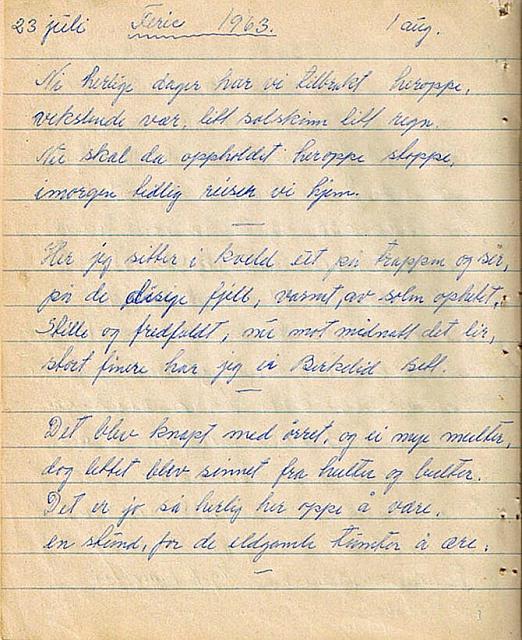 23 juli Ferie 1963. 1 aug.
Ni herlige dager har vi tilbrakt heroppe,
vekslende vær, litt solskinn litt regn.
Nu skal da oppholdet heroppe stoppe,
imorgen tidlig reiser vi hjem.
Her jeg sitter i kveld ut på trappen og ser,
på de disige fjell, varmet, av solen ophett,
Stille og fredfuldt, nu mot midnatt det lir,
stort finere har jeg ei Birkelid sett.
Det blev knapt med ørret, og ei mye multer,
dog lettet blev sinnet fra hulter og bulter.
Det er jo så herlig her oppe å være,
en stund, for de eldgamle tomter å ære.